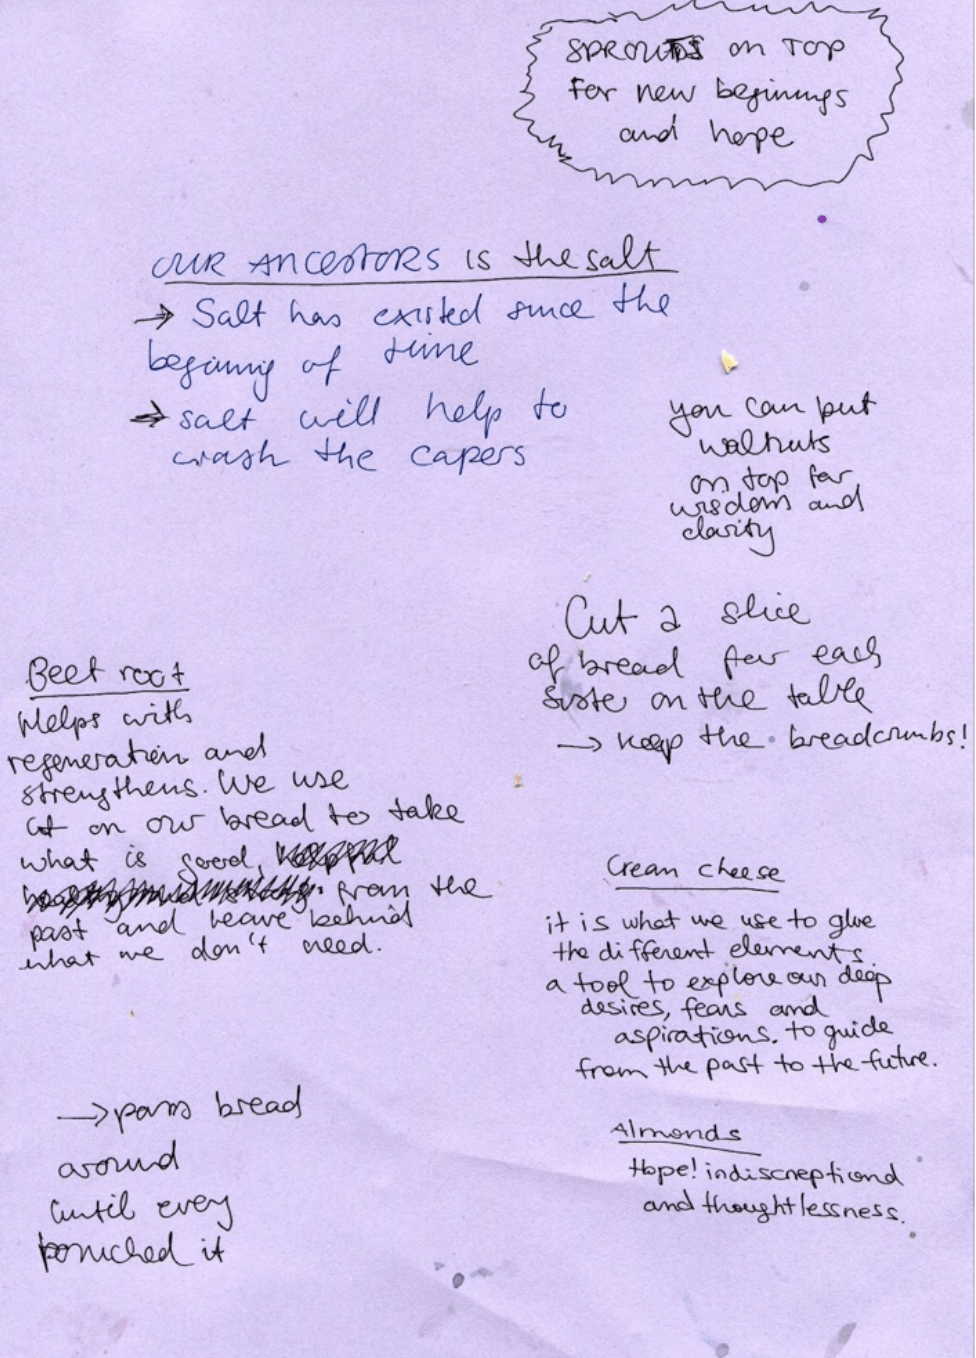 SPROUTS on TOP
For new beginings
and hope
OUR ANCESTORS is the salt
→ Salt has existed since the
begining of time
→ salt will help to
crash the capers
you can put
walnuts
on top for
wisdom and
clarity
Cut a slice
of bread for each
sister on the table
→ keep the breadcrumbs!
Beet root
Helps with
regeneration and
strengthens. We use
it on our bread to take
what is good,
from the
past and leave behind
what we don't need.
Cream cheese
it is what we use to glue
the different elements.
a tool to explore our deep
desires, fears and
aspirations. to guide
from the past to the future.
→ pass bread
around
until every
it
Almonds
Hope!
and thoughtlessness.